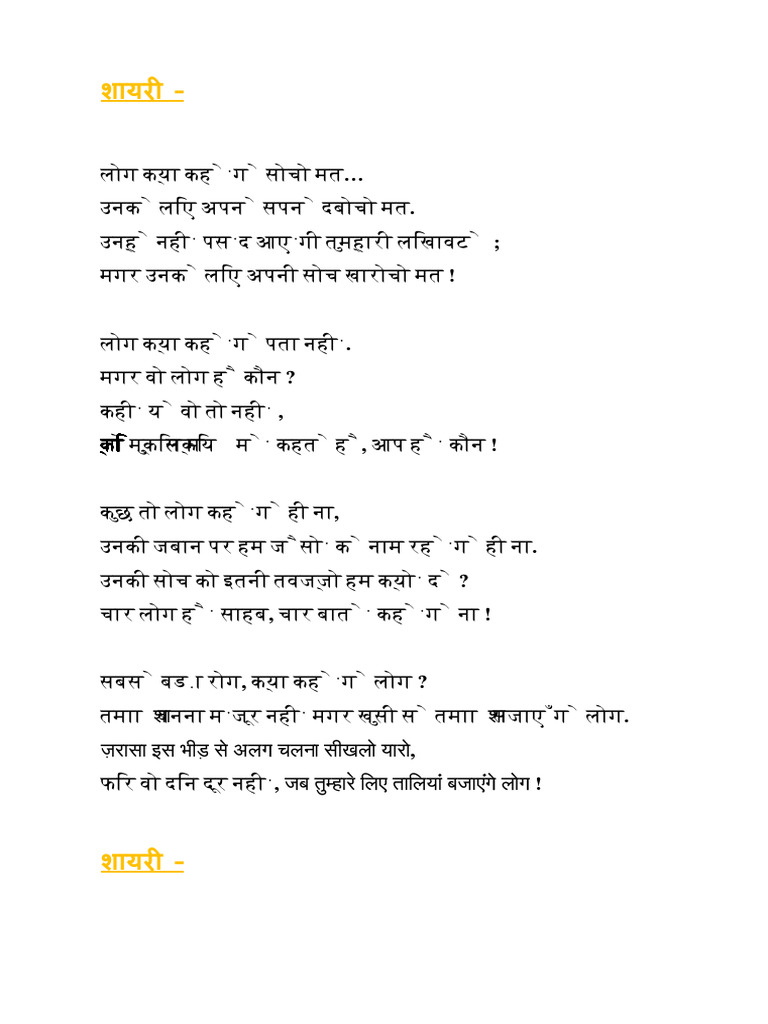 शायरी -
लोग क्या कहेंगे सोचो मत...
उनके लिए अपने सपने दबोचो मत.
उन्हे नहीं पसंद आएंगी तुम्हारी लिखावटे ;
मगर उनके लिए अपनी सोच खारोचो मत !
लोग क्या कहेंगे पता नहीं.
मगर वो लोग है कौन ?
कहीं ये वो तो नहीं ,
में कहते है, आप हैं कौन !
कुछ तो लोग कहेंगे ही ना,
उनकी जबान पर हम जैसों के नाम रहेंगे ही ना.
उनकी सोच को इतनी तवज्जो हम क्यों दे ?
चार लोग हैं साहब, चार बातें कहेंगे ना !
सबसे बड़ा रोग, क्या कहेंगे लोग ?
मंजूर नहीं मगर खुसी से लोग.
ज़रासा इस भीड़ से अलग चलना सीखलो यारो,
फिर वो दिन दूर नहीं, जब तुम्हारे लिए तालियां बजाएंगे लोग !
शायरी -